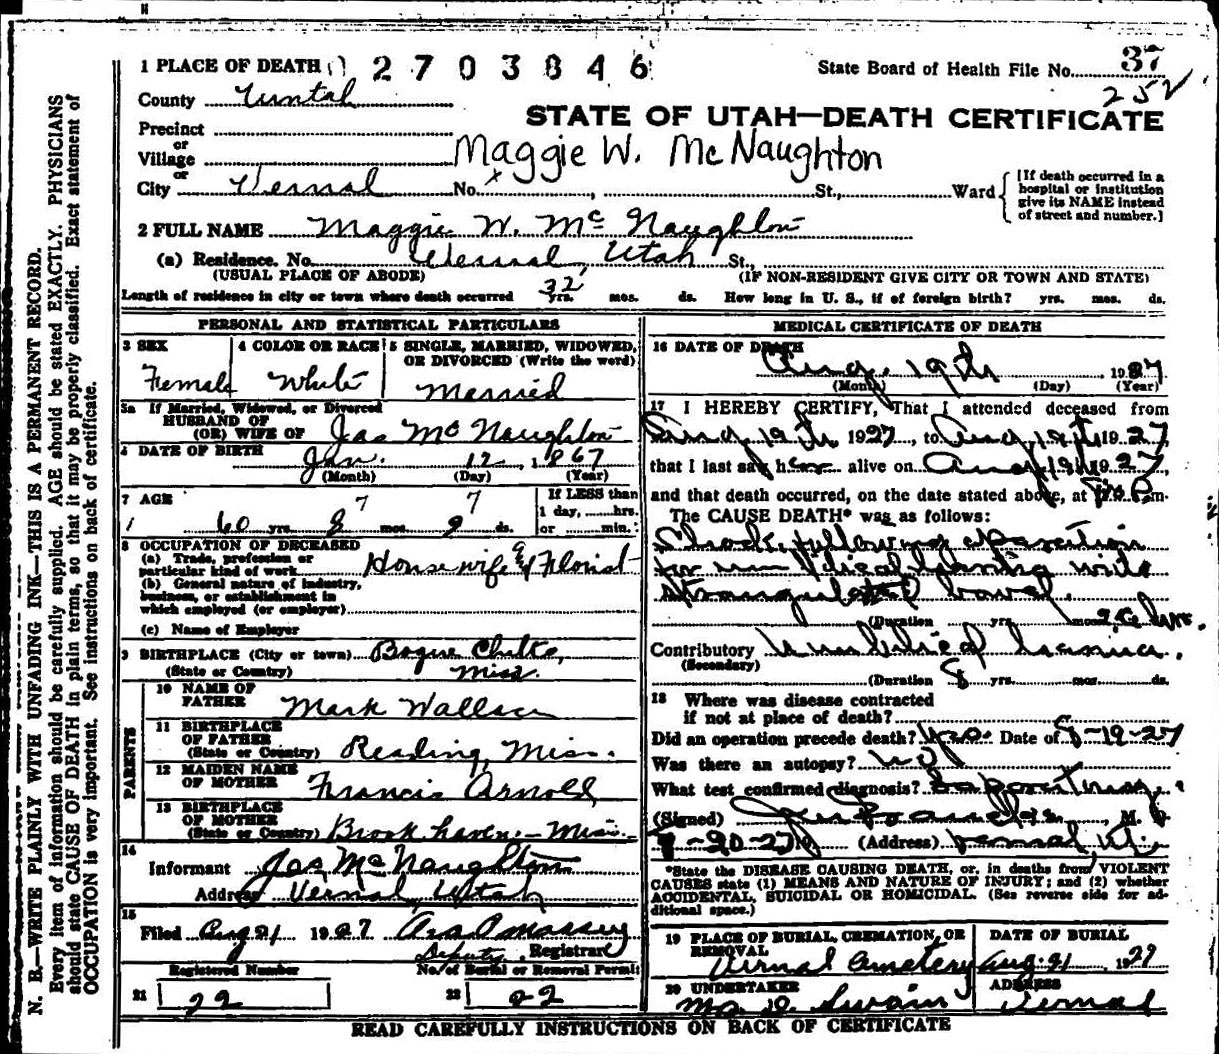 1 PLACE OF DEATH 2703846 State Board of Health File No. 37
County Uintah 252
STATE OF UTAH—DEATH CERTIFICATE
Precinct
or
Village Maggie W. McNaughton
or
City Vernal No. x , St., Ward { [If death occurred in a hospital or institution give its NAME instead of street and number.]
2 FULL NAME Maggie W. Mc Naughton
(a) Residence. No. Vernal, Utah St.,
(USUAL PLACE OF ABODE) (IF NON-RESIDENT GIVE CITY OR TOWN AND STATE)
Length of residence in city or town where death occurred 32 yrs. mos. ds. How long in U. S., if of foreign birth? yrs. mos. ds.
PERSONAL AND STATISTICAL PARTICULARS
3 SEX Female
4 COLOR OR RACE White
5 SINGLE, MARRIED, WIDOWED, OR DIVORCED (Write the word) Married
5a If Married, Widowed, or Divorced
HUSBAND OF
(OR) WIFE OF Jas Mc Naughton
6 DATE OF BIRTH Jan. 12, 1867
(Month) (Day) (Year)
7 AGE 7 7 If LESS than
1 day, hrs.
60 yrs. 8 mos. 9 ds. or min.
8 OCCUPATION OF DECEASED
(a) Trade, profession or
particular kind of work Housewife & Florist
(b) General nature of industry,
business, or establishment in
which employed (or employer)
(c) Name of Employer
9 BIRTHPLACE (City or town) Bogue Chitto,
(State or Country) Miss.
PARENTS
10 NAME OF
FATHER Mark Wallace
11 BIRTHPLACE
OF FATHER
(State or Country) Reading, Miss.
12 MAIDEN NAME
OF MOTHER Francis Arnold
13 BIRTHPLACE
OF MOTHER
(State or Country) Brook haven - Miss.
14
Informant Jas McNaughton
Address Vernal, Utah
15
Filed Aug 21 1927
Deputy Registrar
Registered Number No. of Burial or Removal Permit
21 22 22 22
MEDICAL CERTIFICATE OF DEATH
16 DATE OF DEATH
Aug. 19th, 1927
(Month) (Day) (Year)
17 I HEREBY CERTIFY, That I attended deceased from
Aug 19th, 1927, to Aug 19th 1927
that I last saw her alive on Aug 19th 1927
and that death occurred, on the date stated above, at m.
The CAUSE DEATH* was as follows:
Shock following operation
for umbilical hernia with
strangulated bowel.
(Duration yrs. mos. 26 hrs.
Contributory Umbilical hernia.
(Secondary)
(Duration 8 yrs. mos. ds.
18 Where was disease contracted
if not at place of death?
Did an operation precede death? yes. Date of 8-19-27
Was there an autopsy? no
What test confirmed diagnosis?
(Signed) M. D.
-20-27 19 (Address) Vernal, Ut.
*State the DISEASE CAUSING DEATH, or, in deaths from VIOLENT
CAUSES state (1) MEANS AND NATURE OF INJURY; and (2) whether
ACCIDENTAL, SUICIDAL OR HOMICIDAL. (See reverse side for ad-
ditional space.)
19 PLACE OF BURIAL, CREMATION, OR REMOVAL Vernal Cemetery
DATE OF BURIAL Aug. 21 1927
20 UNDERTAKER Swain
ADDRESS Vernal
READ CAREFULLY INSTRUCTIONS ON BACK OF CERTIFICATE
N. B.—WRITE PLAINLY WITH UNFADING INK—THIS IS A PERMANENT RECORD.
Every item of information should be carefully supplied. AGE should be stated EXACTLY. PHYSICIANS
should state CAUSE OF DEATH in plain terms, so that it may be properly classified. Exact statement of
OCCUPATION is very important. See instructions on back of certificate.